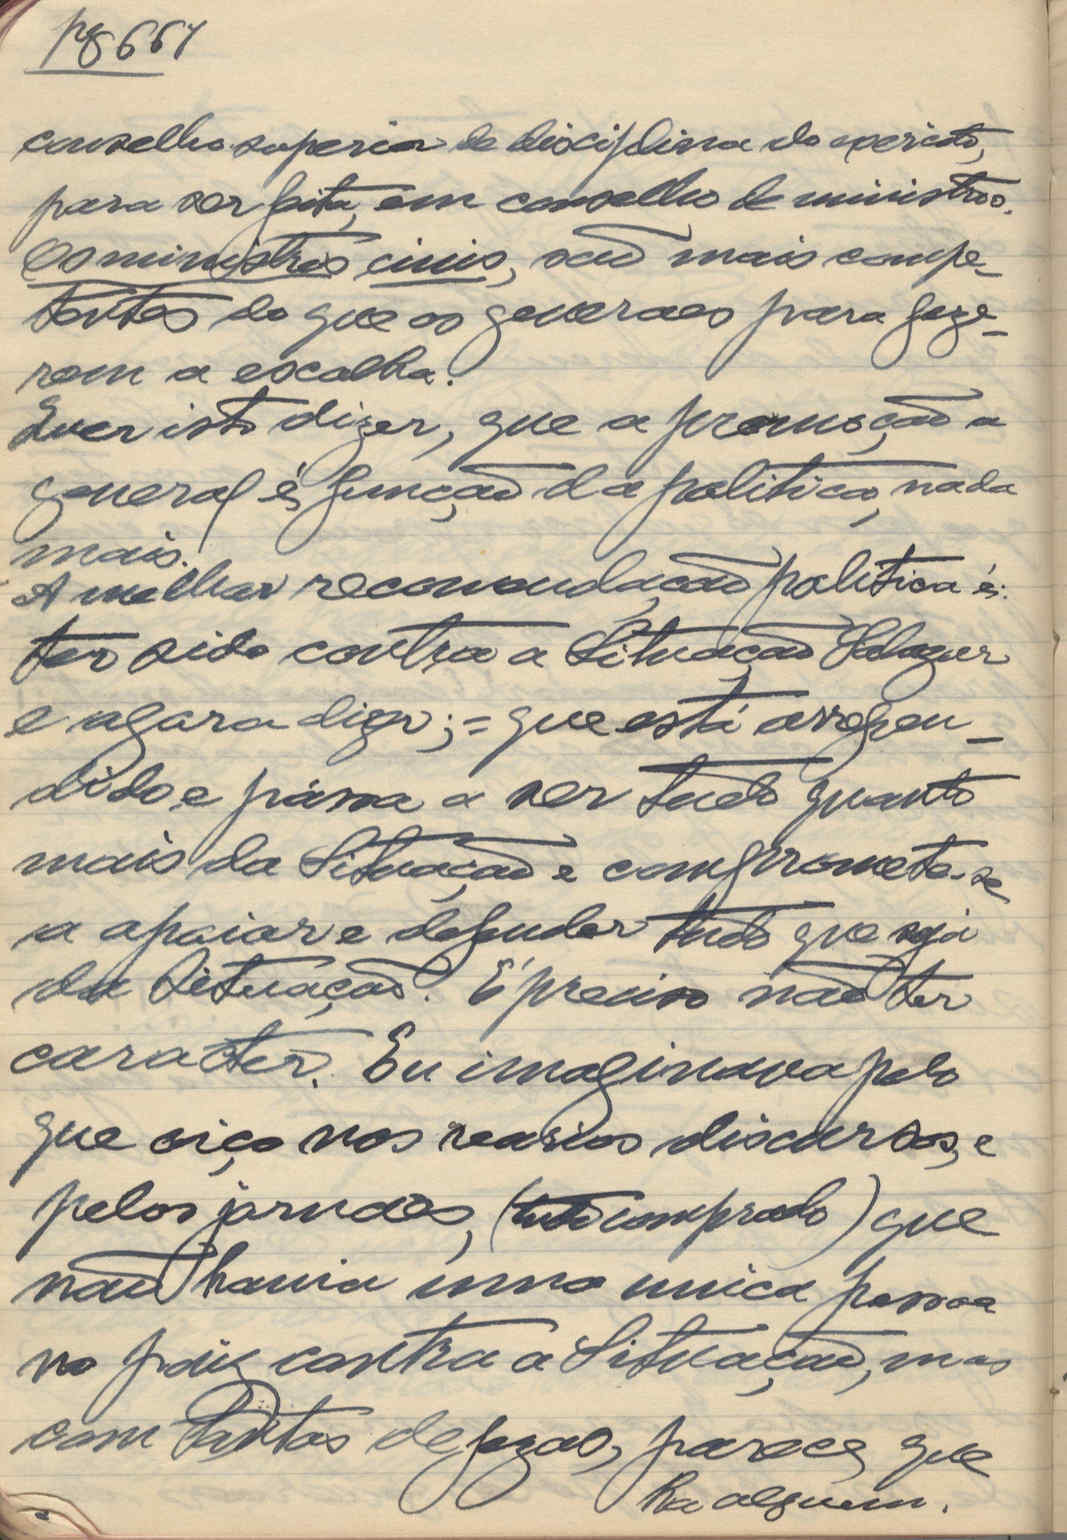 pg 661
conselho superior de disciplina do exercito,
para ser feita, em conselho de ministros.
Os ministros civis, são mais compe-
tentes do que os generaes para faze-
rem a escolha.
Quer isto dizer, que a promoção a
general é, função da politica, nada
mais.
A melhor recomendação politica é:
ter sido contra a Situação Salazar
e agora diga; = que está arrepen-
dido e pássa a ser tudo quanto
mais da Situação e compromete-se
a apoiar e defender tudo que seja
da Situação. É preciso não ter
caracter. Eu imaginava pelo
que oiço nos varios discursos, e
pelos jornaes, (tudo comprado) que
não havia uma unica pessoa
no paiz contra a Situação, mas
com tantas defezas, parece, que
ha alguem.